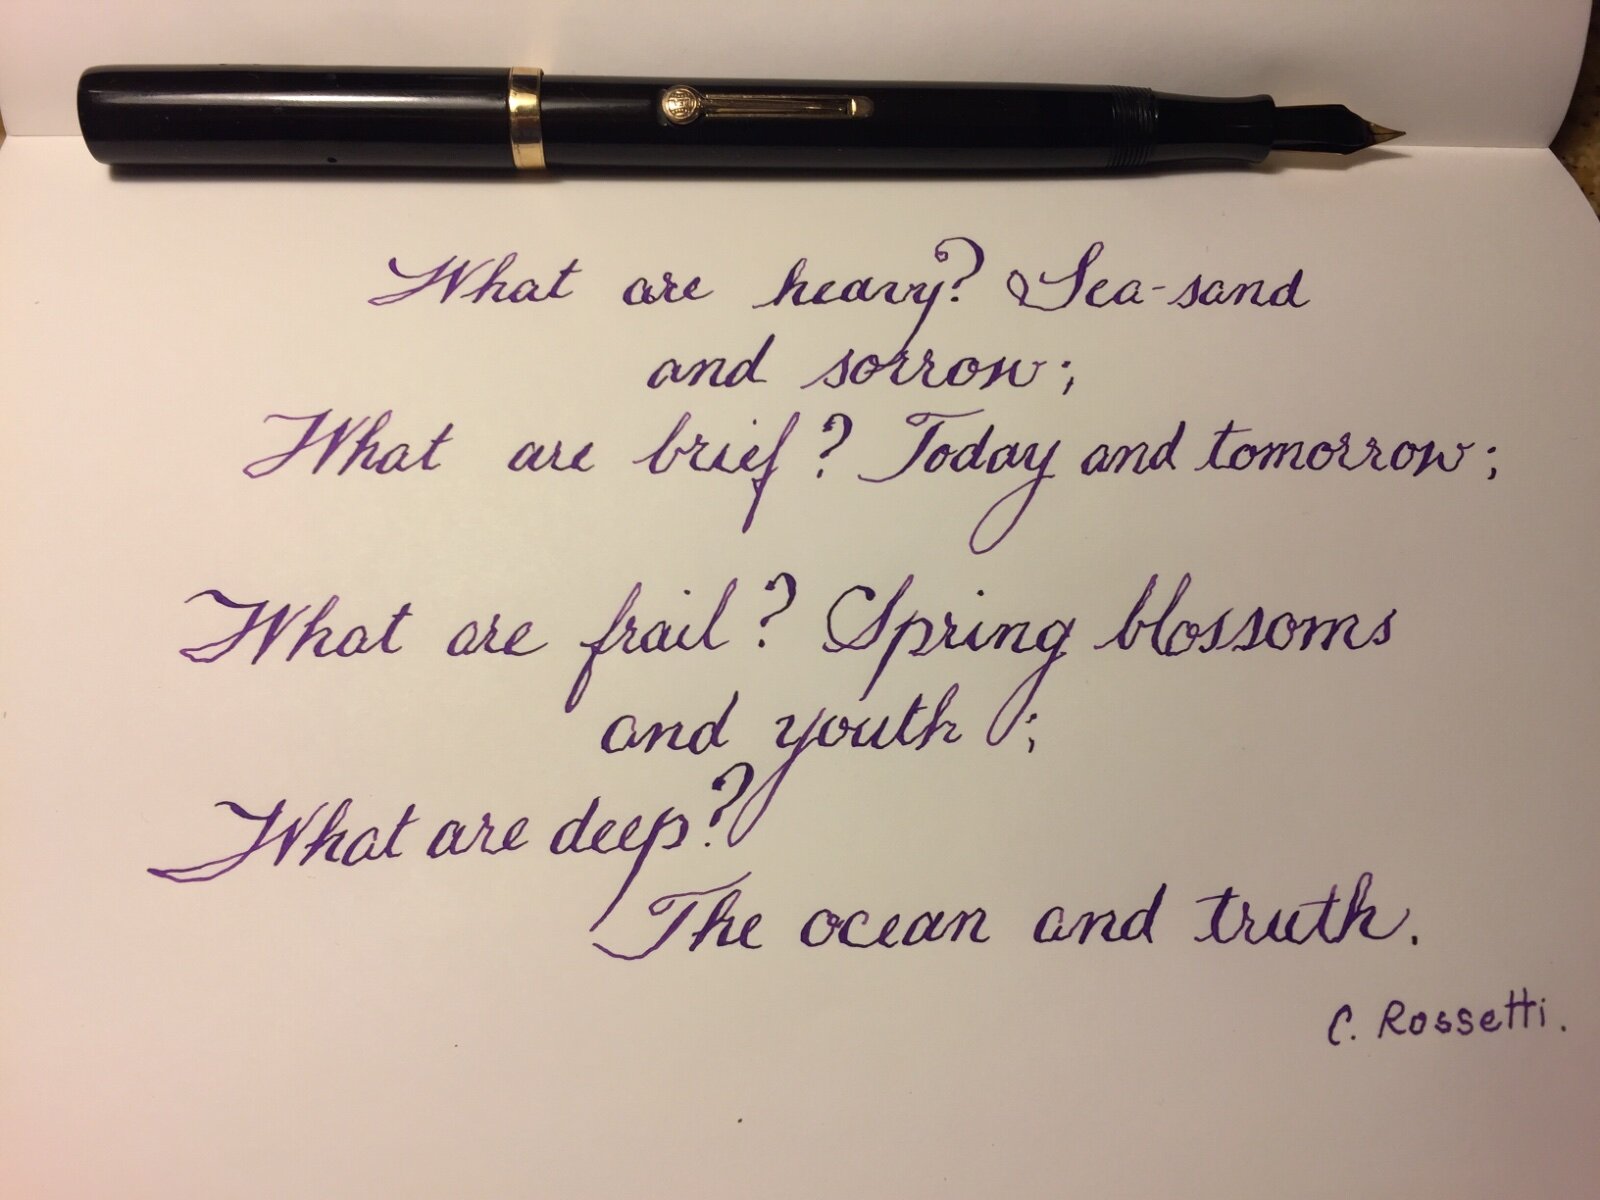 What are heavy? Sea-sand
and sorrow;
What are brief? Today and tomorrow;
What are frail? Spring blossoms
and youth;
What are deep?
The ocean and truth.
C. Rossetti.